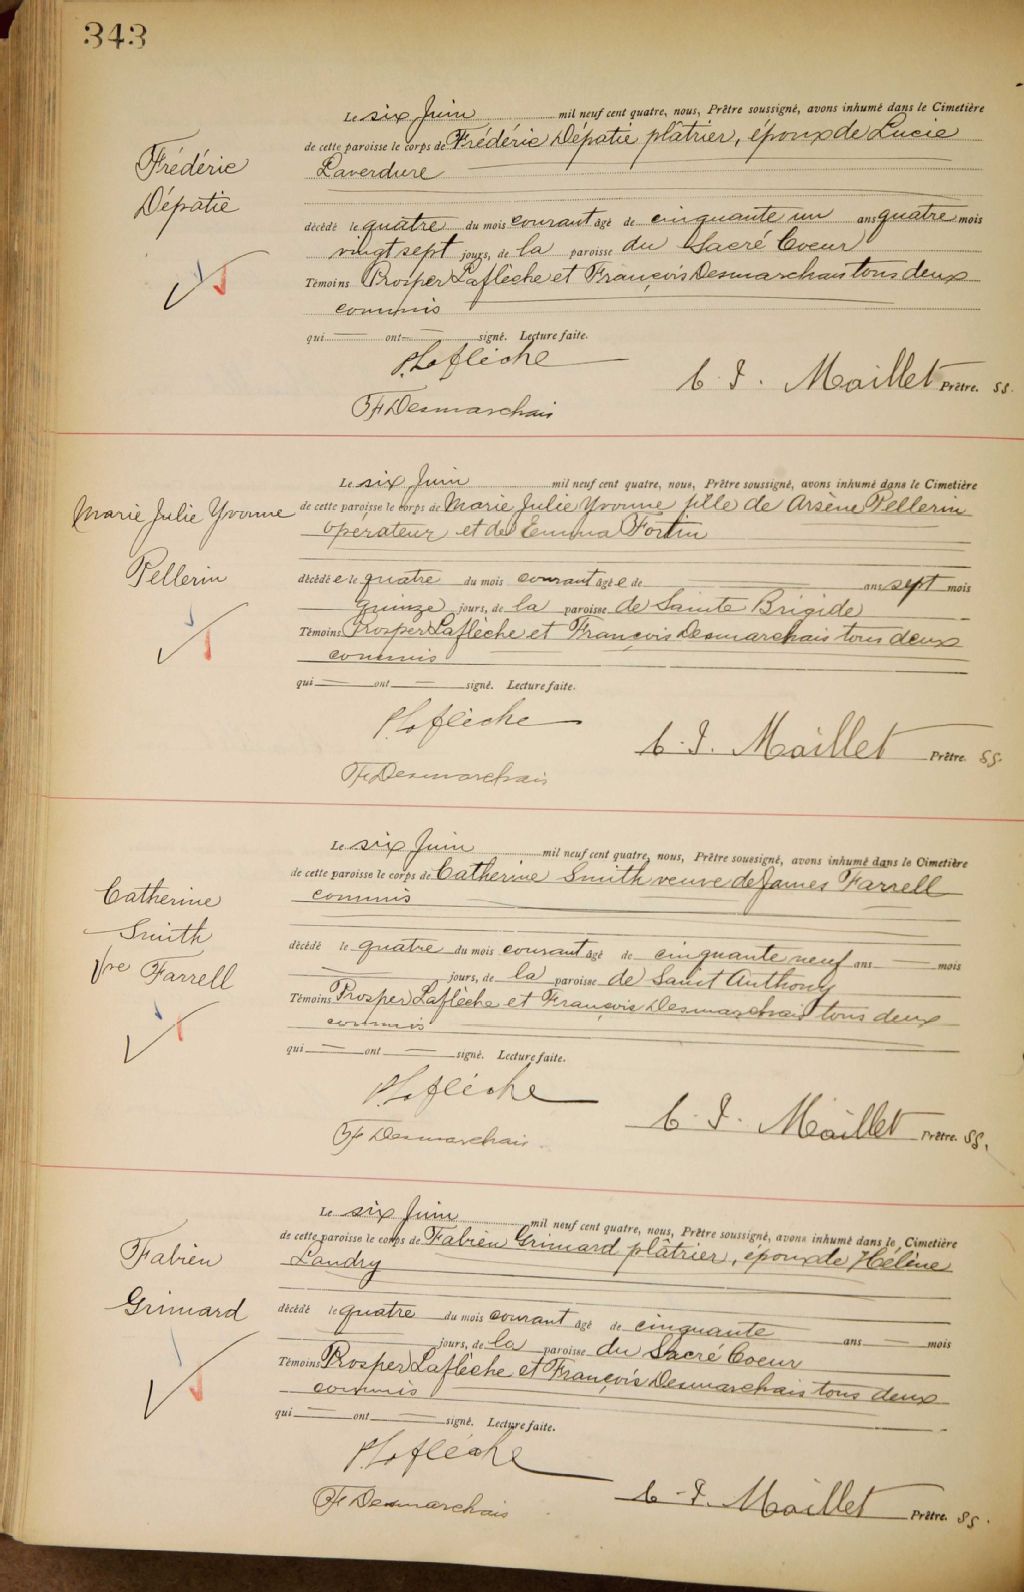 343
Le six Juin mil neuf cent quatre, nous, Prêtre soussigné, avons inhumé dans le Cimetière
de cette paroisse le corps de Frédéric Dépatie plâtrier, époux de Lucie
Laverdure
Frédéric
Dépatie
décédé le quatre du mois courant âgé de cinquante un ans quatre mois
vingt sept jours, de la paroisse du Sacré Coeur
Témoins Prosper Laflèche et François Desmarchais tous deux
commis
qui — ont — signé. Lecture faite.
P. Laflèche
C. I. Maillet Prêtre. SS.
F Desmarchais
Le six Juin mil neuf cent quatre, nous, Prêtre soussigné, avons inhumé dans le Cimetière
Marie Julie Yvonne
de cette paroisse le corps de Marie Julie Yvonne fille de Arsène Pellerin
opérateur et de Emma Fortin
Pellerin
décédée le quatre du mois courant âgée de — ans sept mois
quinze jours, de la paroisse de Sainte Brigide
Témoins Prosper Laflèche et François Desmarchais tous deux
commis
qui — ont — signé. Lecture faite.
P. Laflèche
C. I. Maillet Prêtre. SS.
F Desmarchais
Le six Juin mil neuf cent quatre, nous, Prêtre soussigné, avons inhumé dans le Cimetière
de cette paroisse le corps de Catherine Smith veuve de James Farrell
commis
Catherine
Smith
Vve Farrell
décédé le quatre du mois courant âgé de cinquante neuf ans — mois
jours, de la paroisse de Saint Anthony
Témoins Prosper Laflèche et François Desmarchais tous deux
commis
qui — ont — signé. Lecture faite.
P. Laflèche
C. I. Maillet Prêtre. SS.
F Desmarchais
Le six Juin mil neuf cent quatre, nous, Prêtre soussigné, avons inhumé dans le Cimetière
de cette paroisse le corps de Fabien Grimard plâtrier, époux de Hélène
Landry
Fabien
Grimard
décédé le quatre du mois courant âgé de cinquante ans — mois
jours, de la paroisse du Sacré Coeur
Témoins Prosper Laflèche et François Desmarchais tous deux
commis
qui — ont — signé. Lecture faite.
P. Laflèche
C. I. Maillet Prêtre. SS.
F Desmarchais